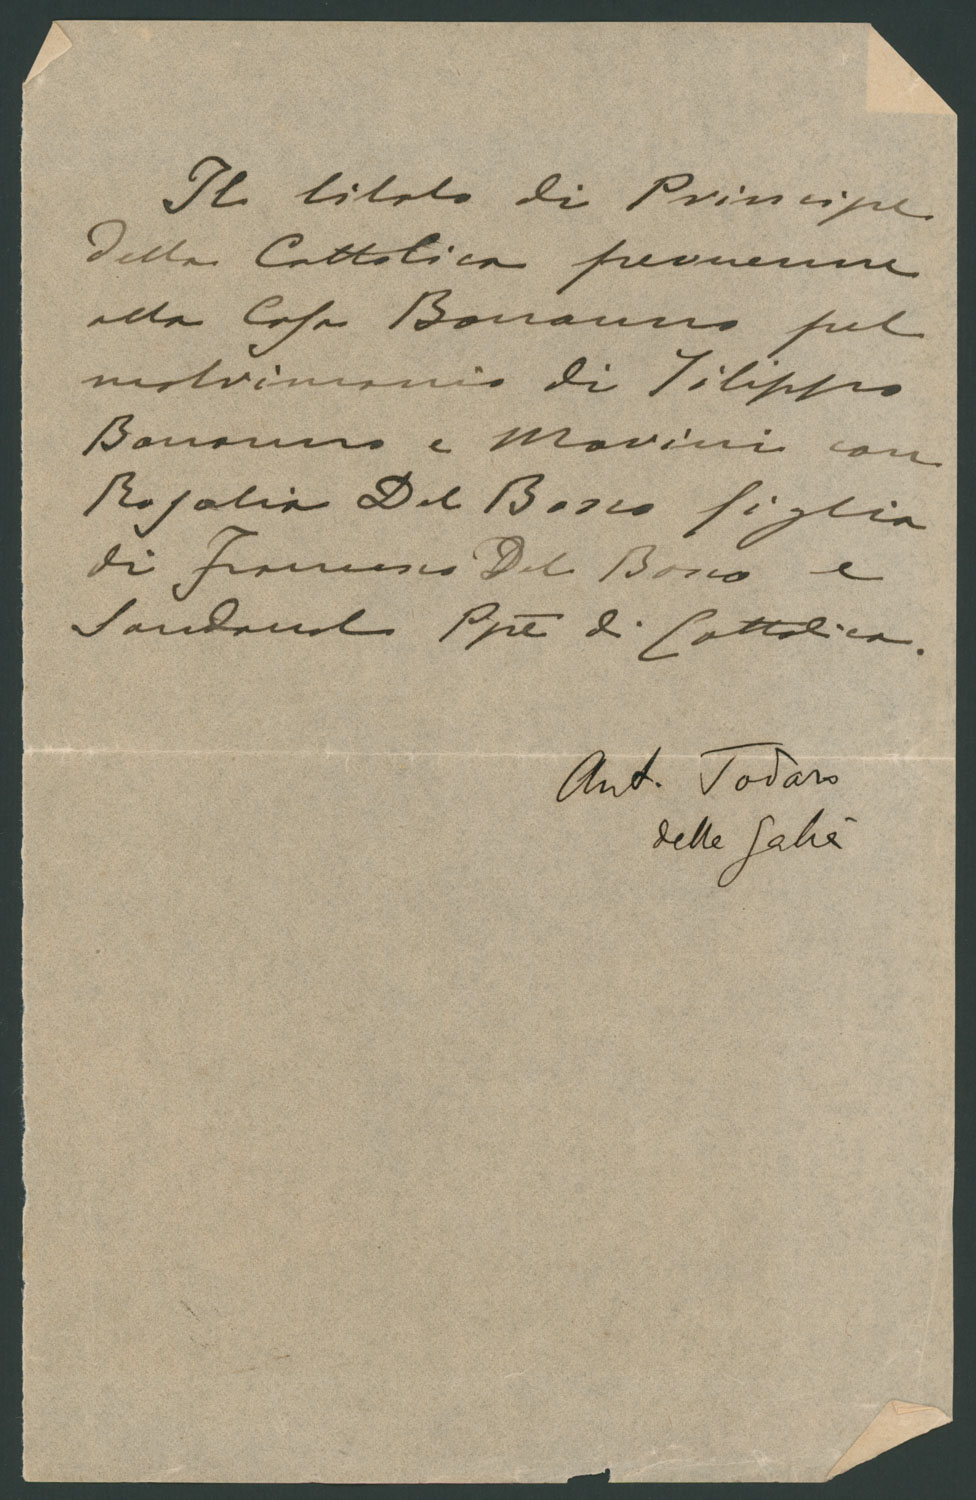 Il titolo di Principe
della Cattolica pervenne
alla Casa Bonanno pel
matrimonio di Filippo
Bonanno e Marini con
Rosalia Del Bosco figlia
di Francesco Del Bosco e
Sandoval Ppe di Cattolica.
Ant. Todaro
delle Galia